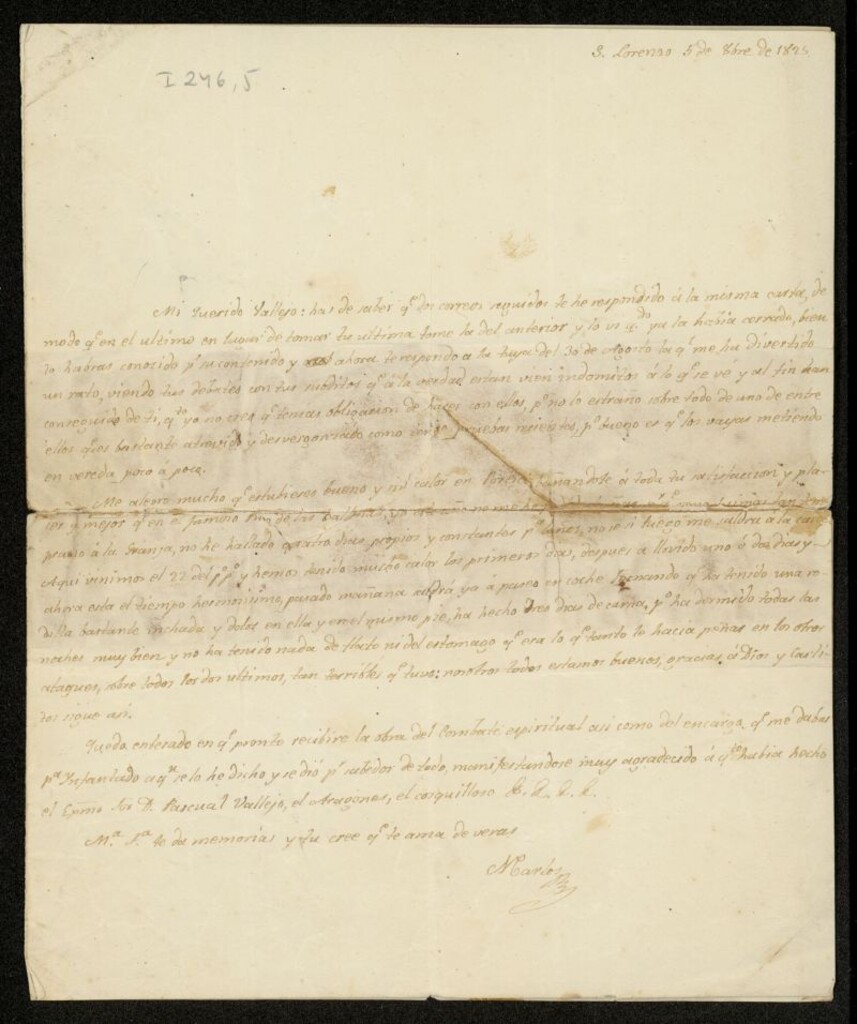 I 246,5
S. Lorenzo 5 de 8bre de 1825.
Mi querido Vallejo: has de saber qe. dos correos seguidos te he respondido á la misma carta, de
modo qe. en el ultimo en lugar de tomar tu ultima tome la del anterior y lo vi qdo. ya la habia cerrado, bien
lo habras conocido pr. su contenido y ahora te respondo a la tuya del 30 de Agosto la qe. me ha divertido
un rato, viendo tus debates con tus qe. á la verdad estan vien indomitos á lo qe. se vé y al fin han
conseguido de ti, qe. yo no creo qe. tengas obligacion de hacer con ellos, po. no lo estraño sobre todo de uno de entre
ellos qe. es bastante atrevido y desvergonzado como recientes, po. bueno es qe. los vayas metiendo
en vereda poco á poco.
Me alegro mucho qe. estubieses bueno y sin calor en bañandote á toda tu satisfaccion y pla-
cer y mejor qe. en el famoso ya
plurio á la Granja, no he hallado quatro dias propios y constantes pa. baños, no se si luego me saldra á la cara
Aqui vinimos el 22 del pp. y hemos tenido mucho calor los primeros dias, despues a llovido uno ó dos dias y
ahora esta el tiempo hermosisimo, pasado mañana saldrá ya á paseo en coche Fernando qe. ha tenido una ro-
dilla bastante inchada y dolor en ella y en el mismo pie, ha hecho tres dias de cama, po. ha dormido todas las
noches muy bien y no ha tenido nada de flato ni del estomago qe. era lo qe. tanto lo hacia penar en los otros
ataques, sobre todo los dos ultimos, tan terribles qe. tuvo: nosotros todos estamos buenos, gracias á Dios y Carli-
tos sigue asi.
Quedo enterado en qe. pronto recibire la obra del Combate espiritual asi como del encargo qe. me dabas
pa. Infantado a qn. se lo he dicho y se dió pr. sabedor de todo, manifestandose muy agradecido á qto. habia hecho
el Exmo. Sr. D. Pascual Vallejo, el Aragones, el cosquilloso &. &. &. &.
Ma. Fca. te da memorias y tu cree qe. te ama de veras
MCarlos